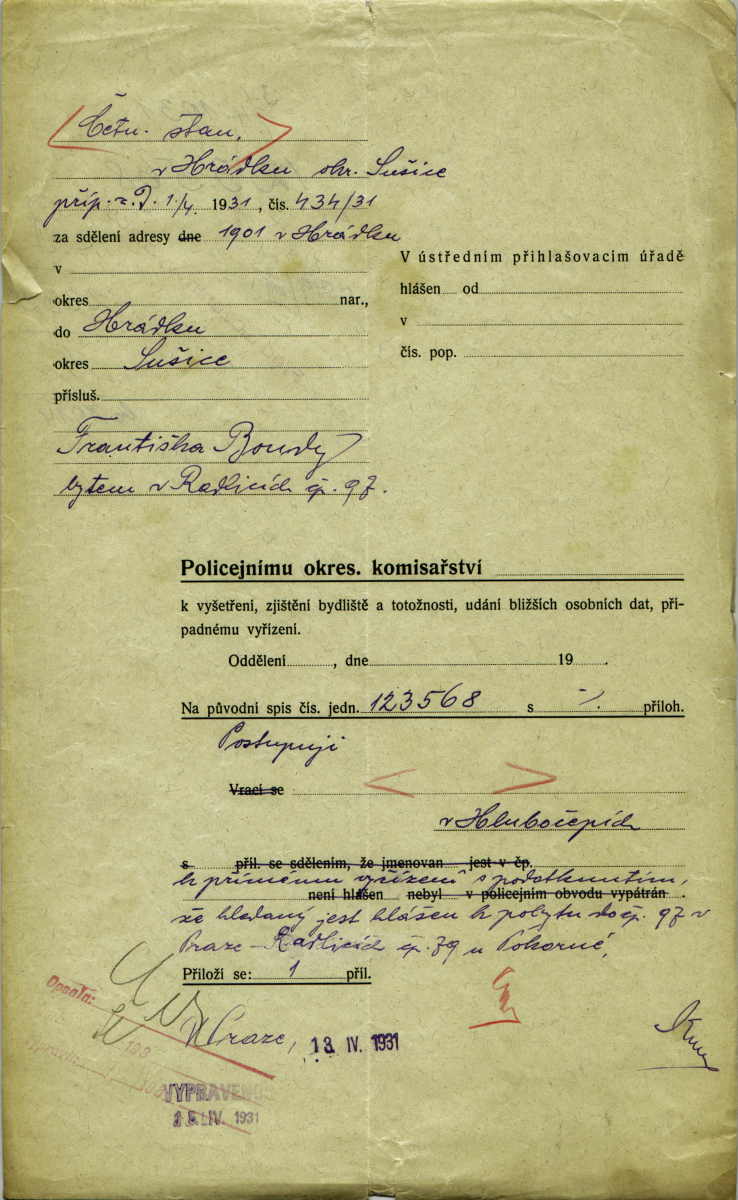 Četn. stan.
v Hrádku okr. Sušice
příp. z. D. 1./4. 1931, čís. 434/31
za sdělení adresy dne 1901 v Hrádku
v
okres nar.,
do Hrádku
okres Sušice
přísluš.
Františka Boudy
bytem v Radlicích čp. 97.
V ústředním přihlašovacím úřadě
hlášen od
v
čís. pop.
Policejnímu okres. komisařství
k vyšetření, zjištění bydliště a totožnosti, udání bližších osobních dat, pří-
padnému vyřízení.
Oddělení , dne 19 .
Na původní spis čís. jedn. 123568 s ./. příloh.
Postupuji
Vrací se
v Hlubočepích
s příl. se sdělením, že jmenovan jest v čp.
k přímému vyřízení s podotknutím,
není hlášen nebyl v policejním obvodu vypátrán .
že hledaný jest hlášen k pobytu do čp. 97 v
Praze - Radlicích čp. 79 u Pokorné,
Přiloží se: 1 příl.
Opsala:
V Praze, 13. IV. 1931
193
VYPRAVENO
15. IV. 1931